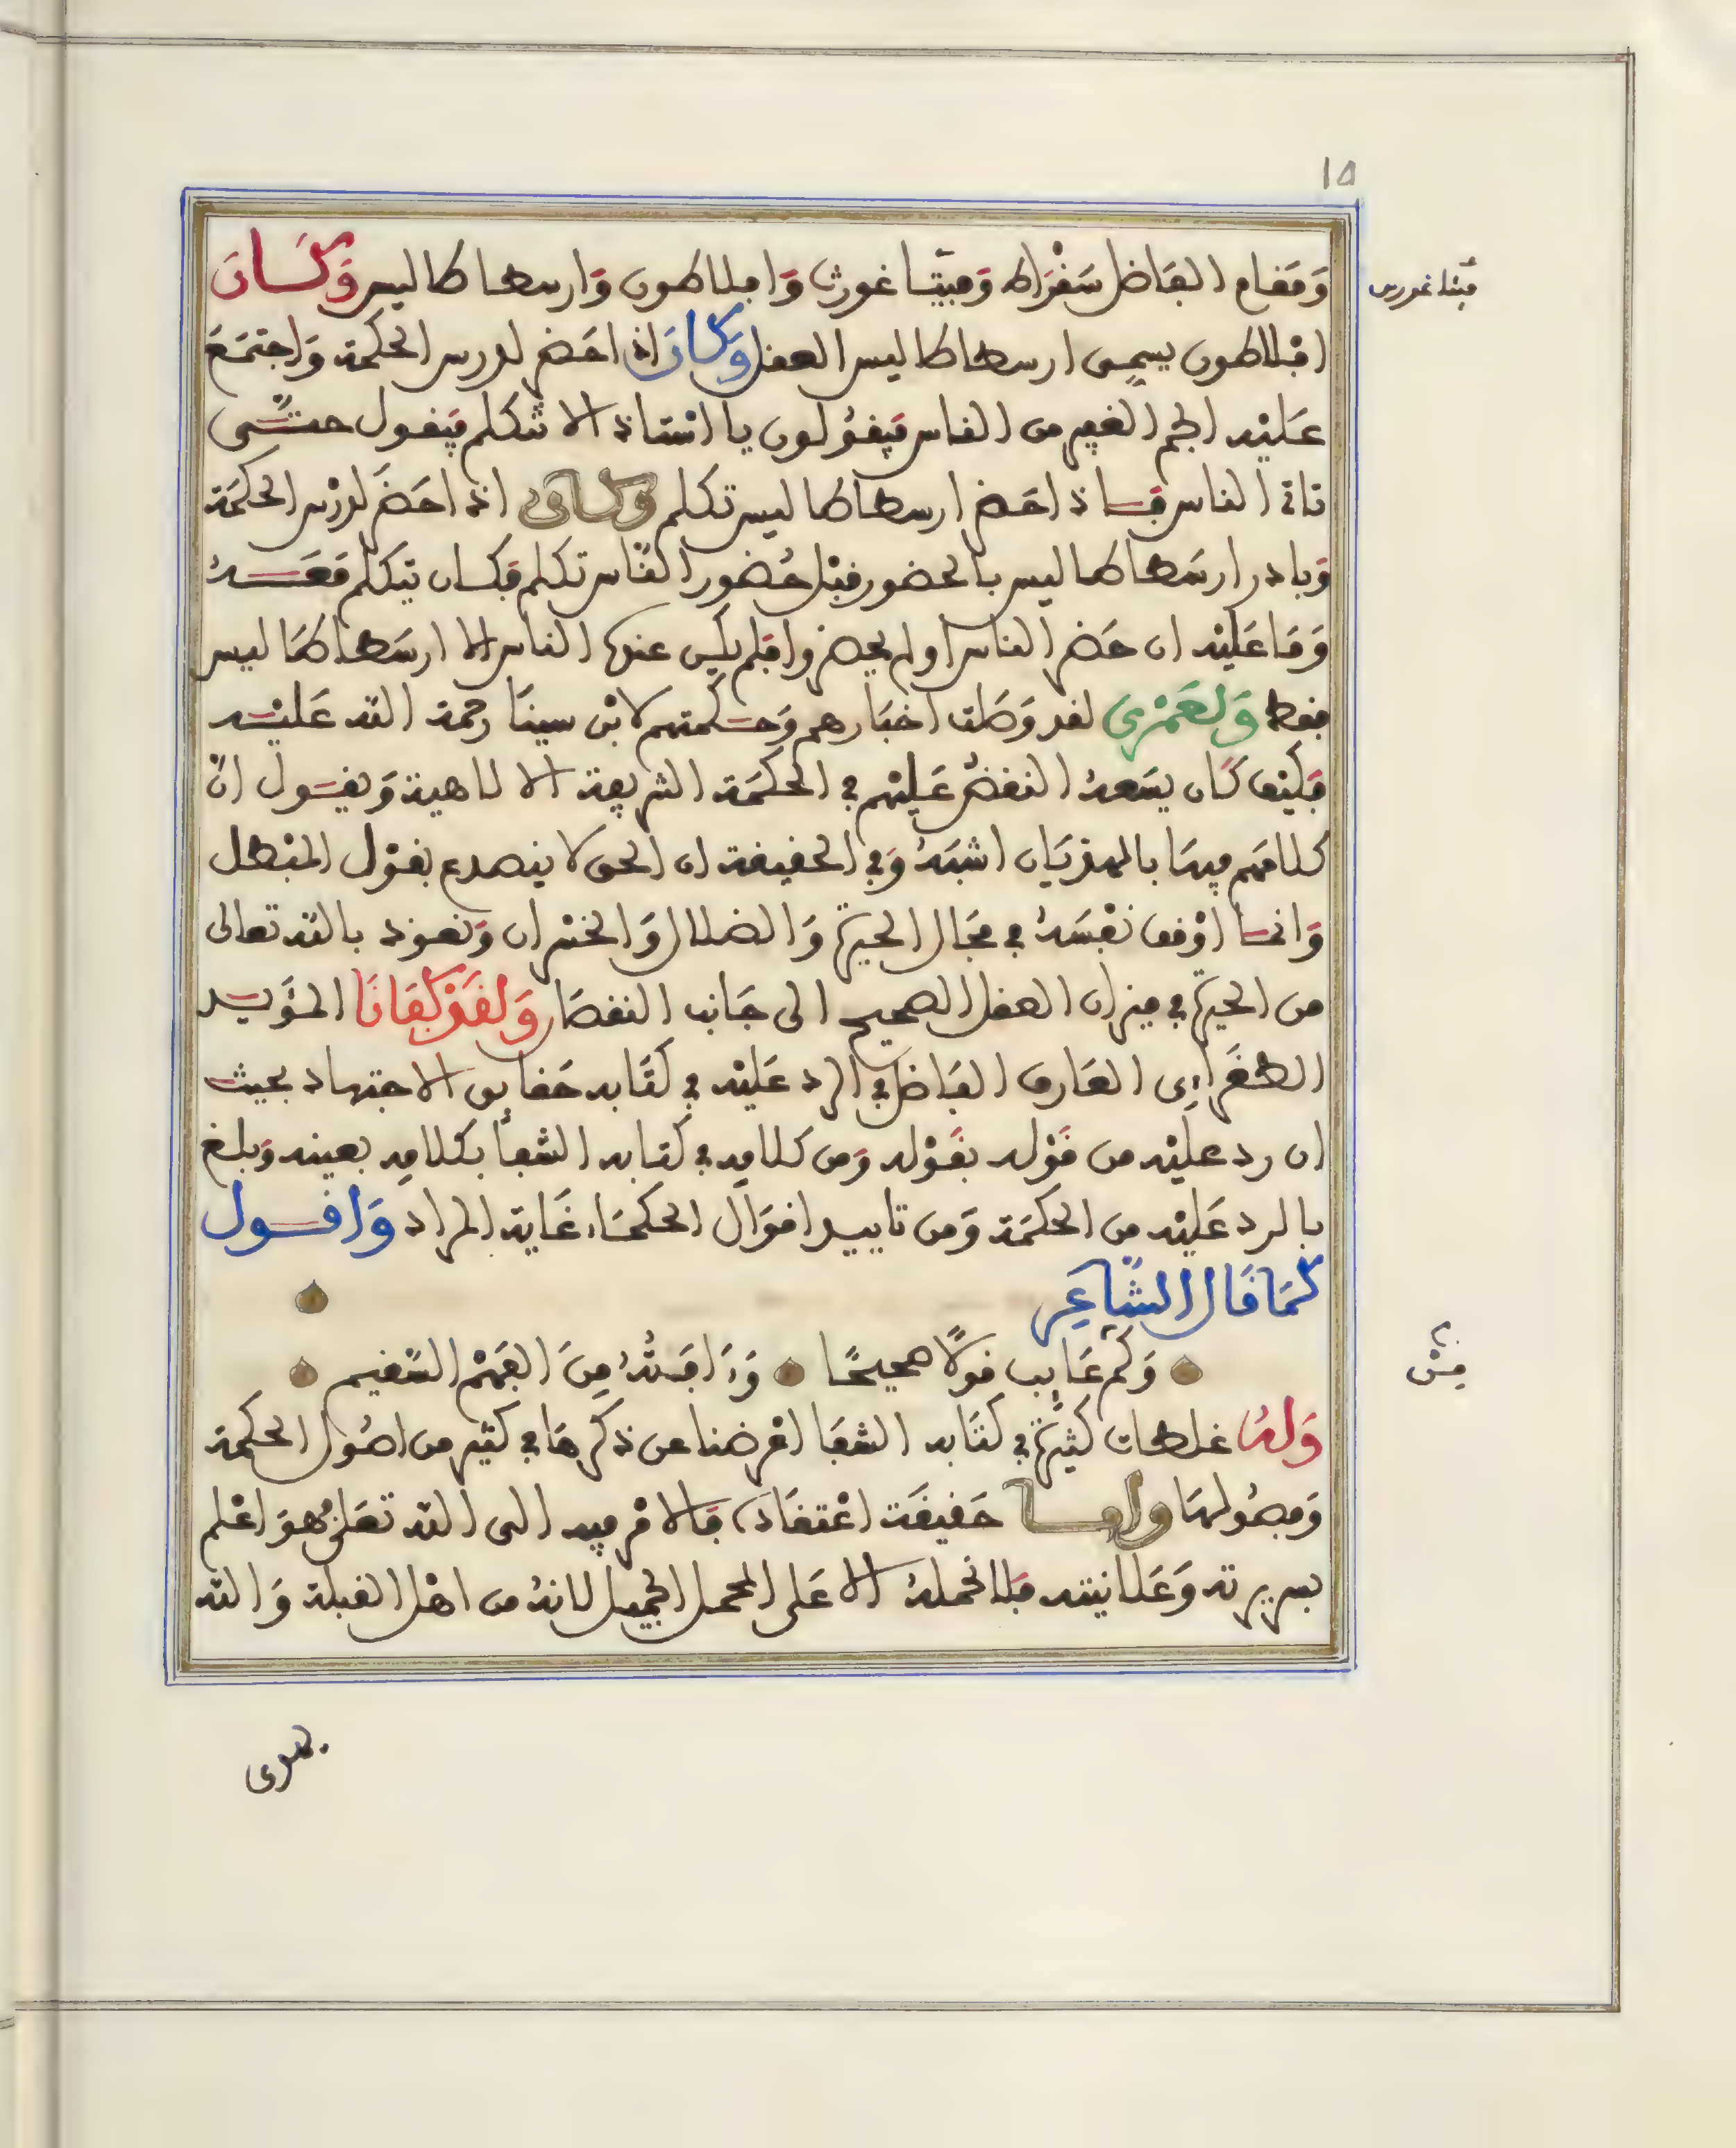 ١٥
وَمَقام الفَاضل سَقْرَاط وَفِيتَاغورث وَافلاطون وَارسطاطاليس وَكَان
افْلاطون يسمِى ارسطاطاليس العقل وَكَانَ اذ احَضر لدرس الحكمة وَاجتمَعَ
عَليْه الجم الغفير من الناس فيَقُولون يا استاذ الا تتكلم فيَقول حتّى
تاتى الناس فَاذ احَضر ارسطاطاليس تكلم وكان اذ احَضَر لدرْس الحكمَة
وَبادر ارسَطاطاليس بالحضور قبْل حُضور النّاس تكلم فكان يتكلم مَعَهُ
وَمَا عَليْه ان حَضر الناس او لم يحضروا فلم يكن عندهُ الناس الا ارسَطاطاليس
فقط وَلعَمْرى لقد وَصَلت اخبَارهم وَحكمتهم لابْن سينَا رحمة الله عَليْه
فكيْف كَان يسَعهُ النقضُ عَليْهم فى الحكمَة الشريفة الالاهية وَيقول انّ
كلامَهم فيهَا بالهذيَان اشبَهُ وَفى الحقيقة ان الحق لا ينصدع بقوْل المبْطل
وَانما اوْقف نفْسَهُ فى مجَال الحيرَة وَالضلال وَالخسْران وَنعوذ بالله تعالى
من الحيرَة فى ميزان العقل الصحيح الى جَانب النقصَان وَلقَدْ كفَانَا المؤَيد
الطغَراءِى العَارف الفَاضل فى الرد عَليْه فى كتَابه حَقايق الاجتهاد بحيث
ان رد عليْه من قَوْله بقَوْله وَمن كلامِه فى كتابه الشفا بكلامِه بعينه وَبلغ
بالرد عَليْه من الحكمَة وَمن تاييد اقوَال الحكمَاء غَاية المراد وَاقول
كمَا قَال الشّاعِر
وَكم عَايب قولًا صحيحًا وَءَافَتُهُ مِنَ الفَهْم السّقيم
وَلهُ غلطات كثيرَة فى كتَابه الشفَا اعْرضنا عن ذكرهَا فى كثير من اصُول الحكمة
وَفصُولهَا وامّا حَقيقَة اعْتقَاده فَالامْر فيه الى الله تعَلى هوَ اعْلم
بسريرته وَعَلانيته فلا نحملهُ الا عَلى المحمل الجميل لانهُ من اهْل القبلة وَالله
فيثاغورس
يهدى